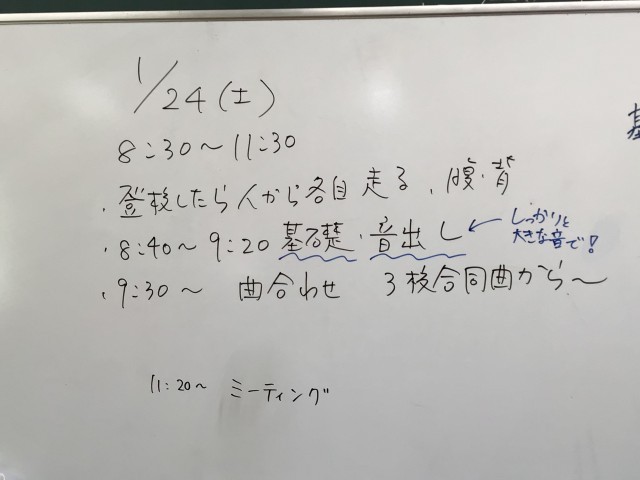 1/24(土)
8:30〜11:30
・登校したら人から各自走る、腹・背
・8:40〜9:20 基礎・音出し ← しっかりと
大きな音で!
・9:30〜 曲合わせ 3校合同曲から〜
11:20〜 ミーティング
基